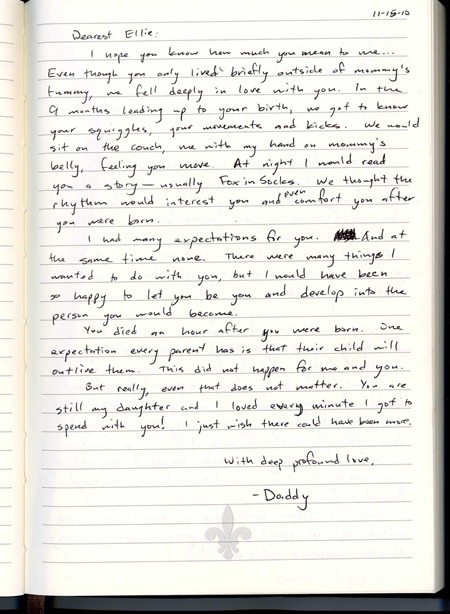 11-18-10
Dearest Ellie:
I hope you know how much you mean to me...
Even though you only lived briefly outside of mommy's
tummy, we fell deeply in love with you. In the
9 months leading up to your birth, we got to know
your squiggles, your movements and kicks. We would
sit on the couch, me with my hand on mommy's
belly, feeling you move. At night I would read
you a story – usually Fox in Socks. We thought the
rhythm would interest you and even comfort you after
you were born.
I had many expectations for you. And at
the same time none. There were many things I
wanted to do with you, but I would have been
so happy to let you be you and develop into the
person you would become.
You died an hour after you were born. One
expectation every parent has is that their child will
outlive them. This did not happen for me and you.
But really, even that does not matter. You are
still my daughter and I loved every minute I got to
spend with you! I just wish there could have been more.
With deep profound love,
- Daddy